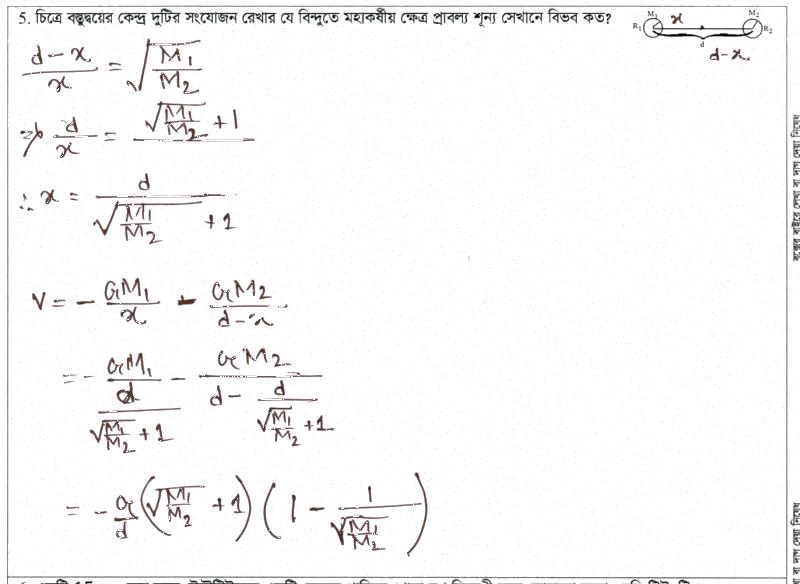 5. চিত্রে বস্তুদ্বয়ের কেন্দ্র দুটির সংযোজন রেখার যে বিন্দুতে মহাকর্ষীয় ক্ষেত্র প্রাবল্য শূন্য সেখানে বিভব কত?
M₁ x M₂
R₁ R₂
d
d-x
(d-x)/x = √(M₁/M₂)
⇒ d/x = √(M₁/M₂) + 1
∴ x = d/(√(M₁/M₂) + 1)
V = - GM₁/x - GM₂/(d-x)
= - GM₁/(d/(√(M₁/M₂) + 1)) - GM₂/(d - d/(√(M₁/M₂) + 1))
= - G/d (√(M₁/M₂) + 1) (1 - 1/√(M₁/M₂))
বক্সের বাইরে লেখা বা দাগ দেয়া নিষেধ
বা দাগ দেয়া নিষেধ